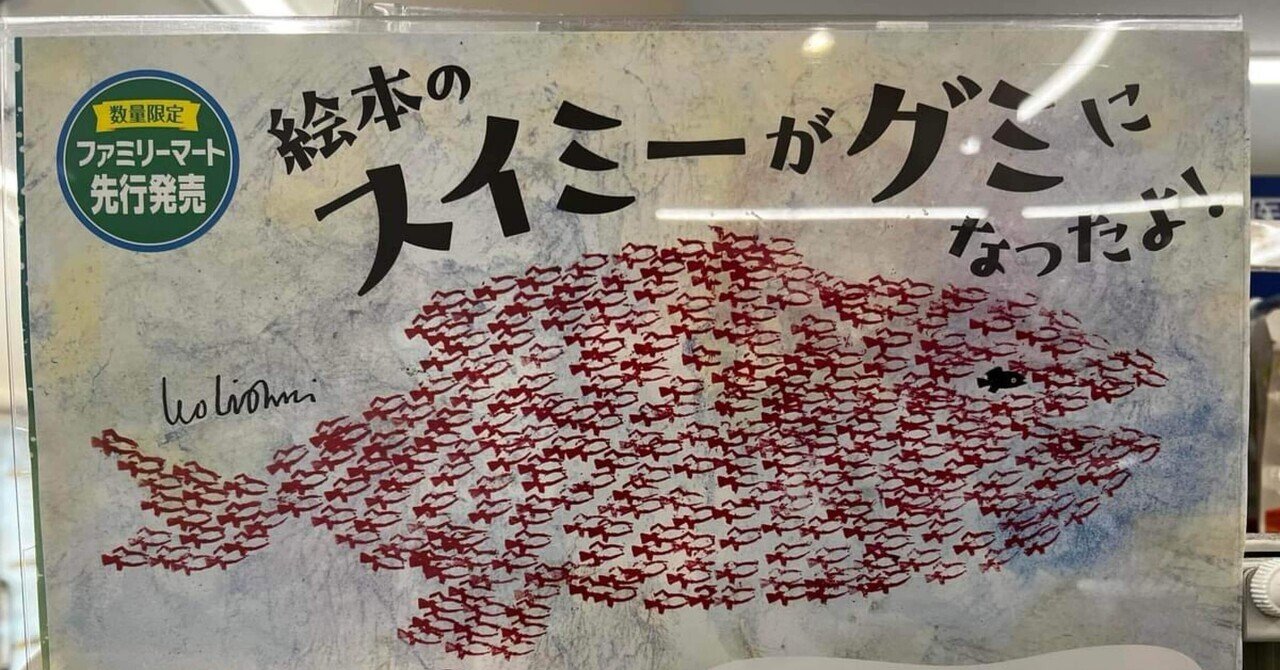 数量限定
ファミリーマート
先行発売
絵本の
スイミーがグミに
なったよ!
leo lionni